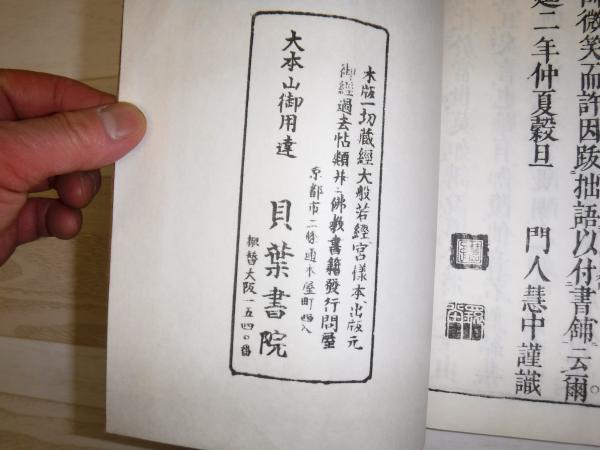 師微笑而許因跋拙語以付書鋪云爾。
延二年仲夏穀旦
門人慧中謹識
木版一切藏經大般若經宮樣本出版元
御經過去帖類并ニ佛教書籍發行問屋
京都市二條通木屋町西入
大本山御用達
貝葉書院
振替大阪一五四〇番